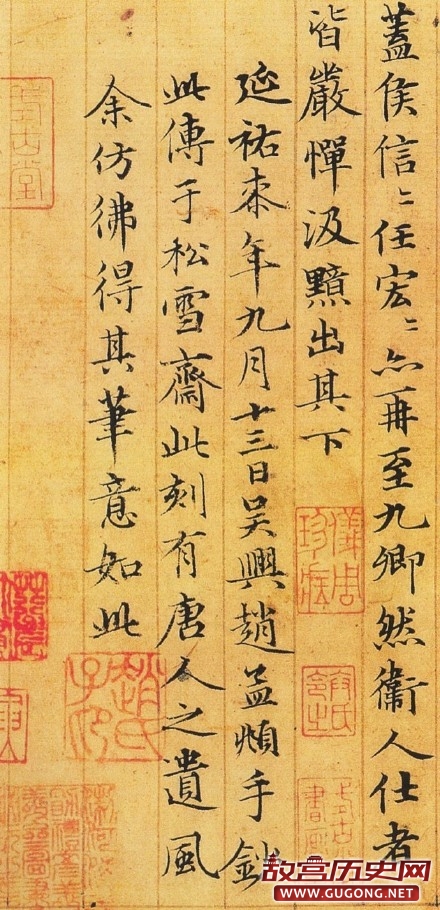 蓋侯信〻任宏〻亦再至九卿然衛人仕者
皆嚴憚汲黯出其下
延祐柒年九月十三日吳興趙孟頫手鈔
此傳于松雪齋此刻有唐人之遺風
余仿彿得其筆意如此
儀周珍藏
趙氏子昂
故宫历史网
www.GUGONG.NET